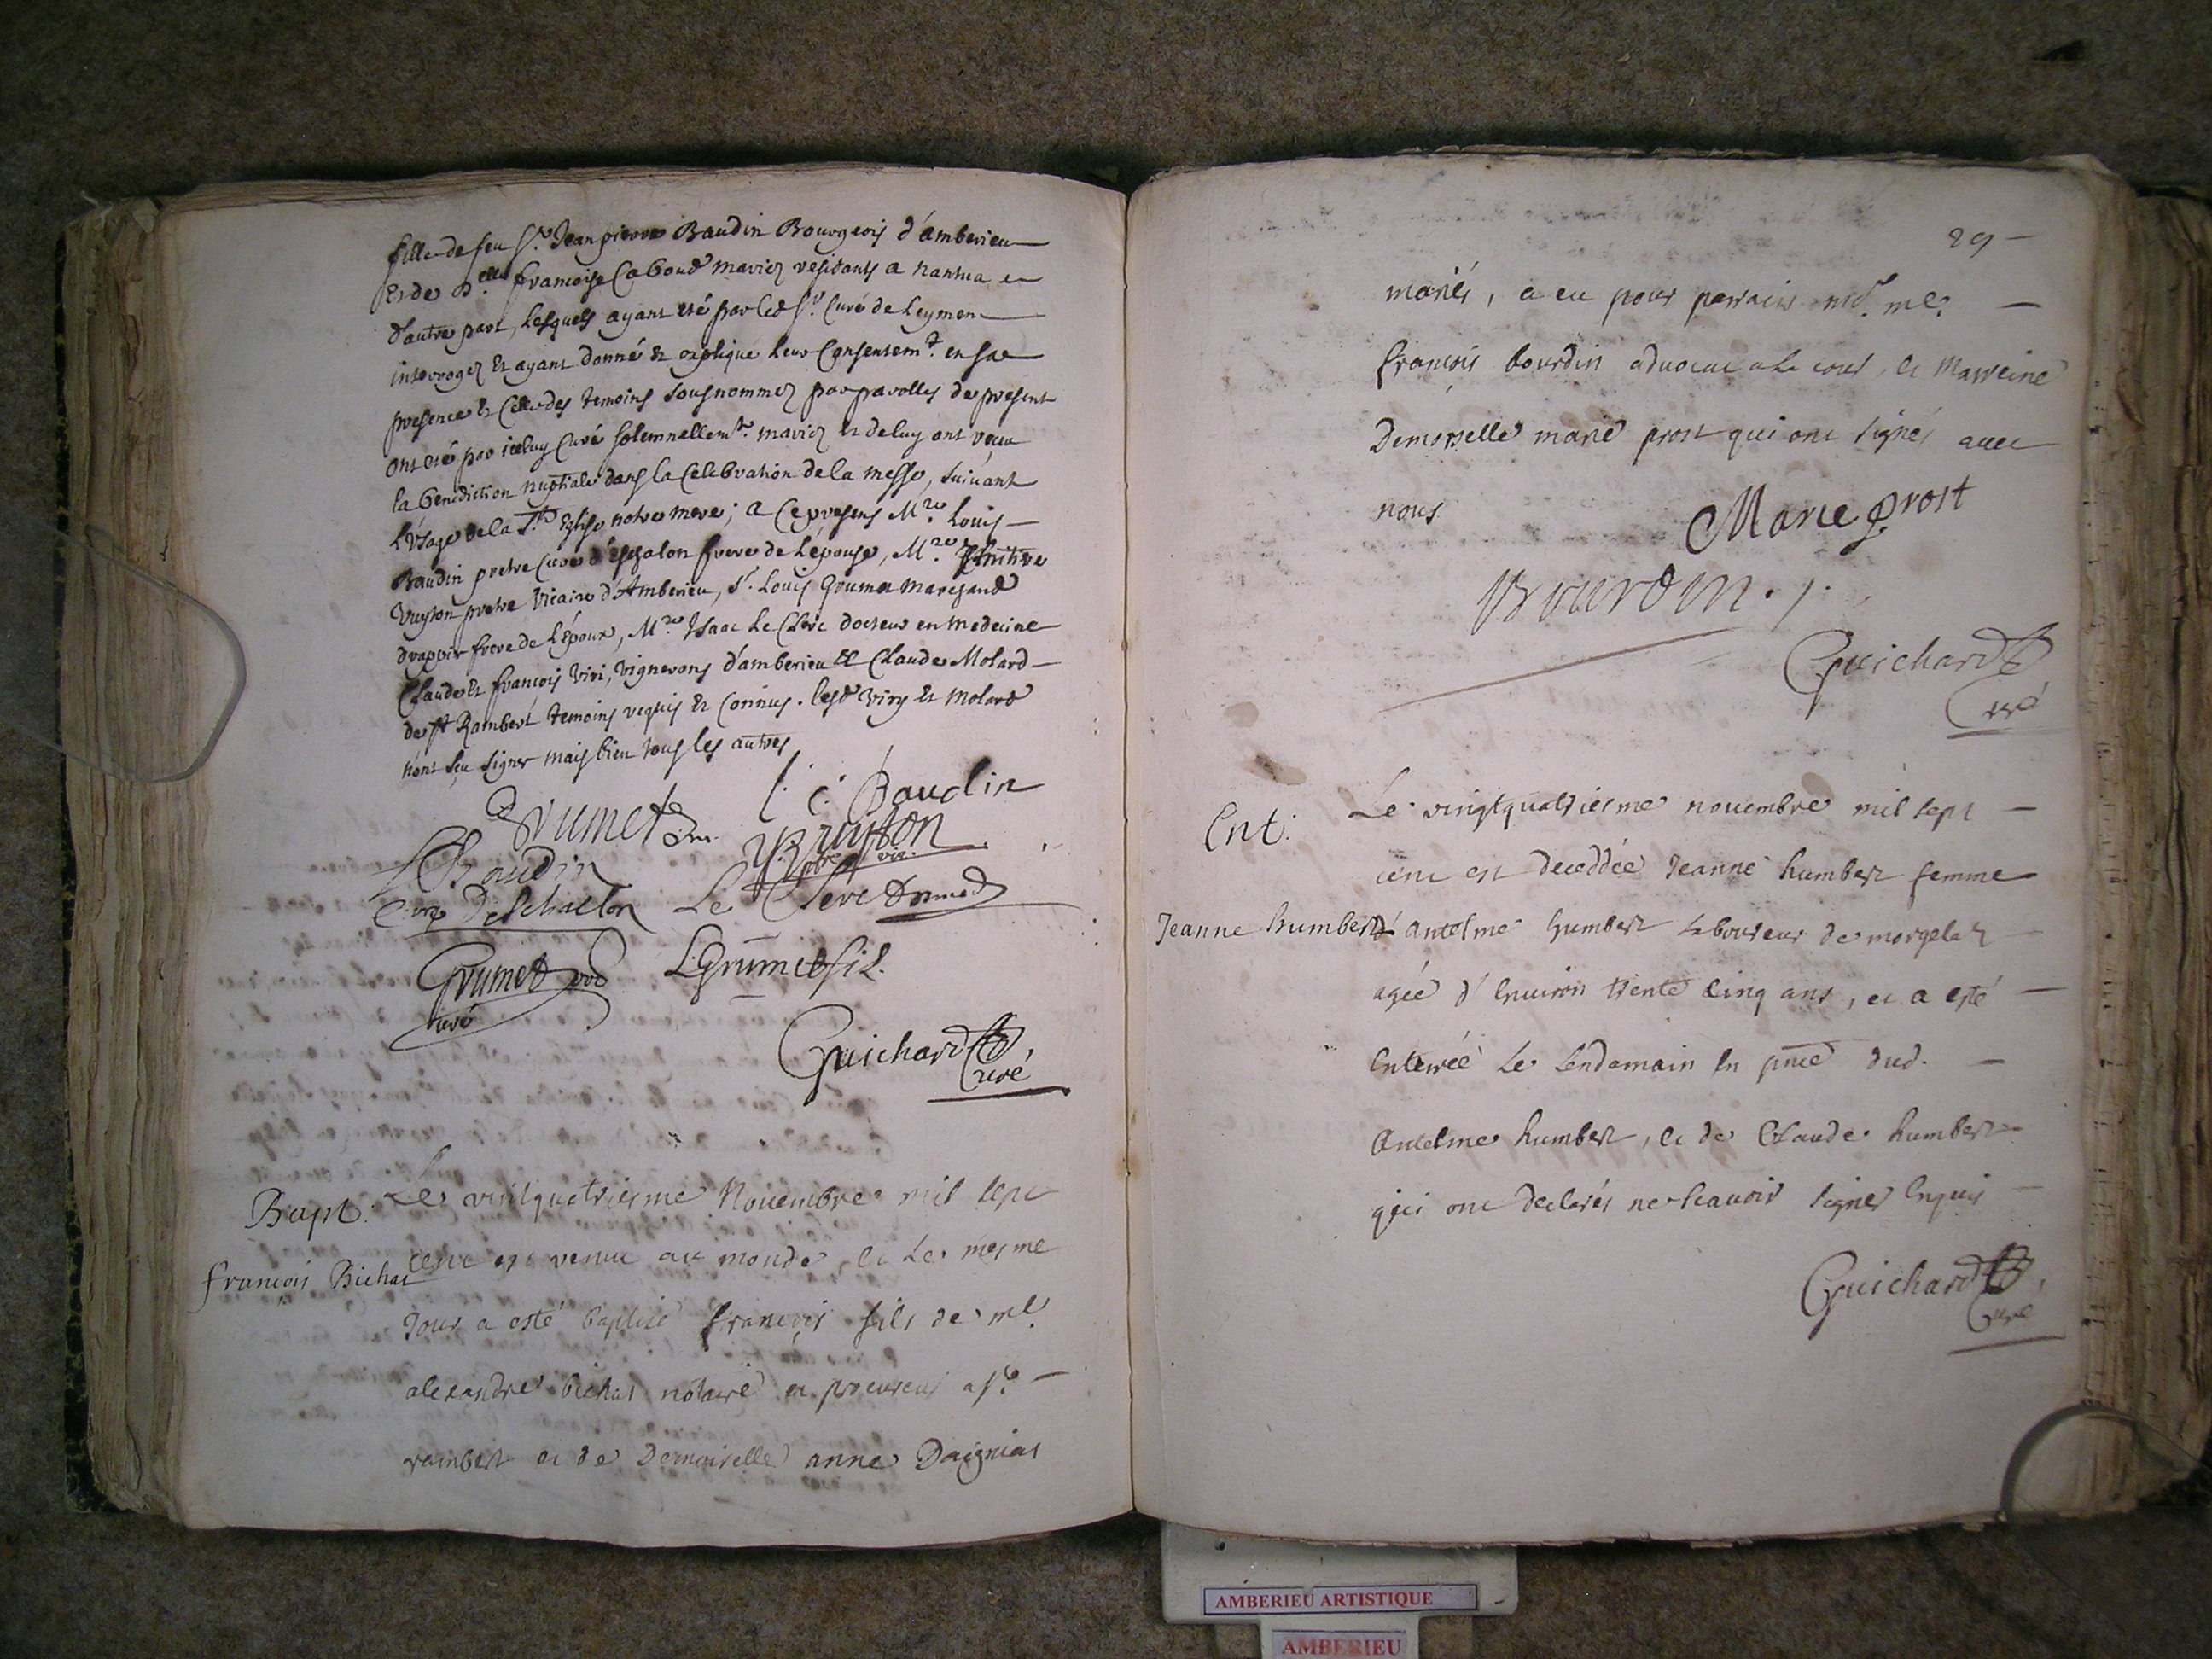 fille de feu Sr. Jean pierre Baudin Bourgeois d'amberieu
Et de Delle francoise Caboud mariez residants a nantua
d'autre part, Lesquels ayant eté par led Sr. Curé de Leymen
interrogez Et ayant donné Et explique leur Consentemt. en sa
presence Et Celle des temoins sousnommez par parolles de present
ont eté par iceluy Curé solemnellemt. mariez et de luy ont receu
la benediction nuptiale dans la Celebration de la messe, suivant
L'Usage de la Ste Eglise notre mere; a Ce presens Mre Louis
Baudin pretre Curé d'Eschalon frere de L'épouse, Mre
Vuyton pretre Vicaire d'Amberieu, Sr. Louis Grumet marchand
drappier frere de L'époux, Mre Isaac Le Clerc docteur en medecine
Claude Et françois Viri, vignerons d'amberieu Et Claude Molard
de St Rambert temoins requis Et Connus. lesd Viry Et Molard
n'ont sçu signer mais bien tous les autres
Grumet L. C. Baudin
L Baudin Vuyton
Curé Deschallon ptre vic.
Le Clerc D med
Grumet L. Grumet fil.
curé
Guichard
Curé
Bapt. Le vintquatriesme Novembre mil sept
cent est venu au monde, et Le mesme
françois Bichat
Jour a esté baptisé françois fils de me.
alexandre bichat notaire et procureur a St.
rambert et de Demoiselle anne Dagnias
29
mariés, a eu pour parrain me.
françois bourdin advocat a la cour, et marreine
Demoiselle marie prost qui ont signés avec
nous
Marie prost
Bourdin
Guichard
Curé
Ent. Le vingtquatriesme novembre mil sept
cent est deceddée Jeanne humbert femme
Jeanne humbert
d'antelme humbert Laboureur de morgelas
agée d'environ trente cinq ans, et a esté
enterrée Le Lendemain en pnce dud.
Antelme humbert, et de Claude humbert
qui ont declarés ne scavoir signer enquis
Guichard
Curé
AMBERIEU ARTISTIQUE
AMBERIEU